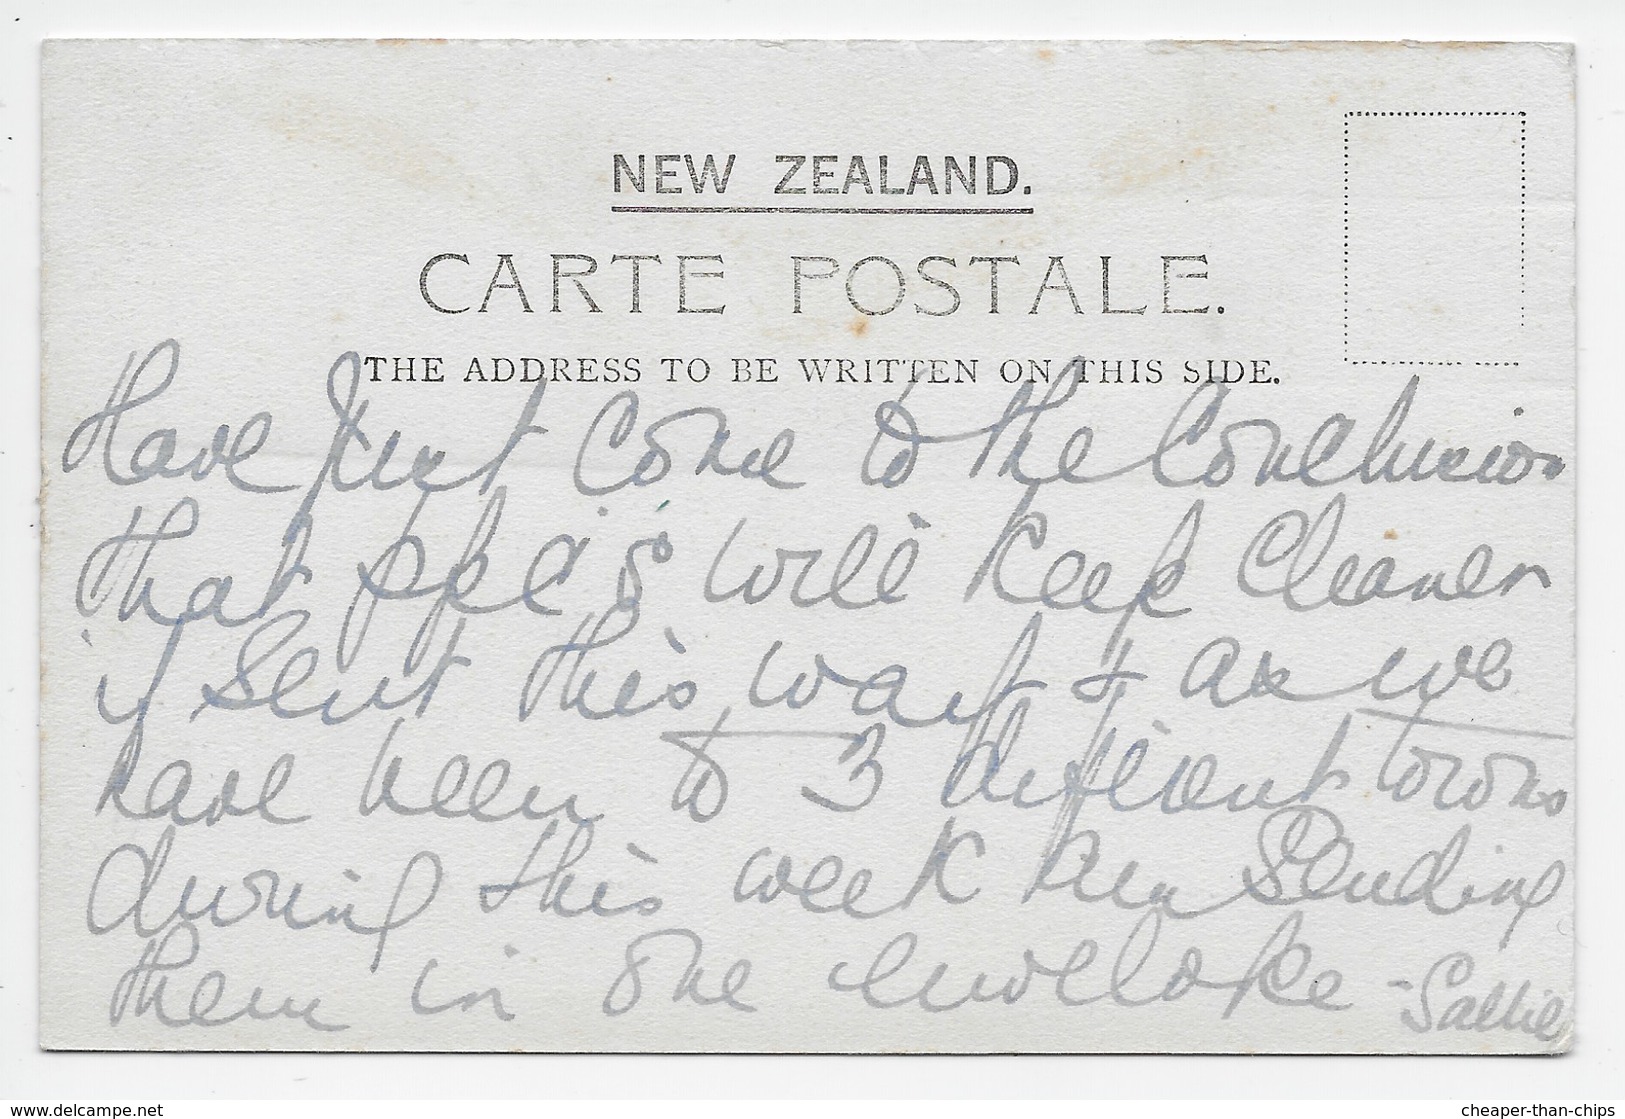 NEW ZEALAND.
CARTE POSTALE.
THE ADDRESS TO BE WRITTEN ON THIS SIDE.
Have Just Come to the Conclusion
that ppc's will Keep Cleaner
if Sent this way & as we
have been to 3 different towns
during this week Am Sending
them in one Envelope - Sallie
www.delcampe.net
cheaper-than-chips